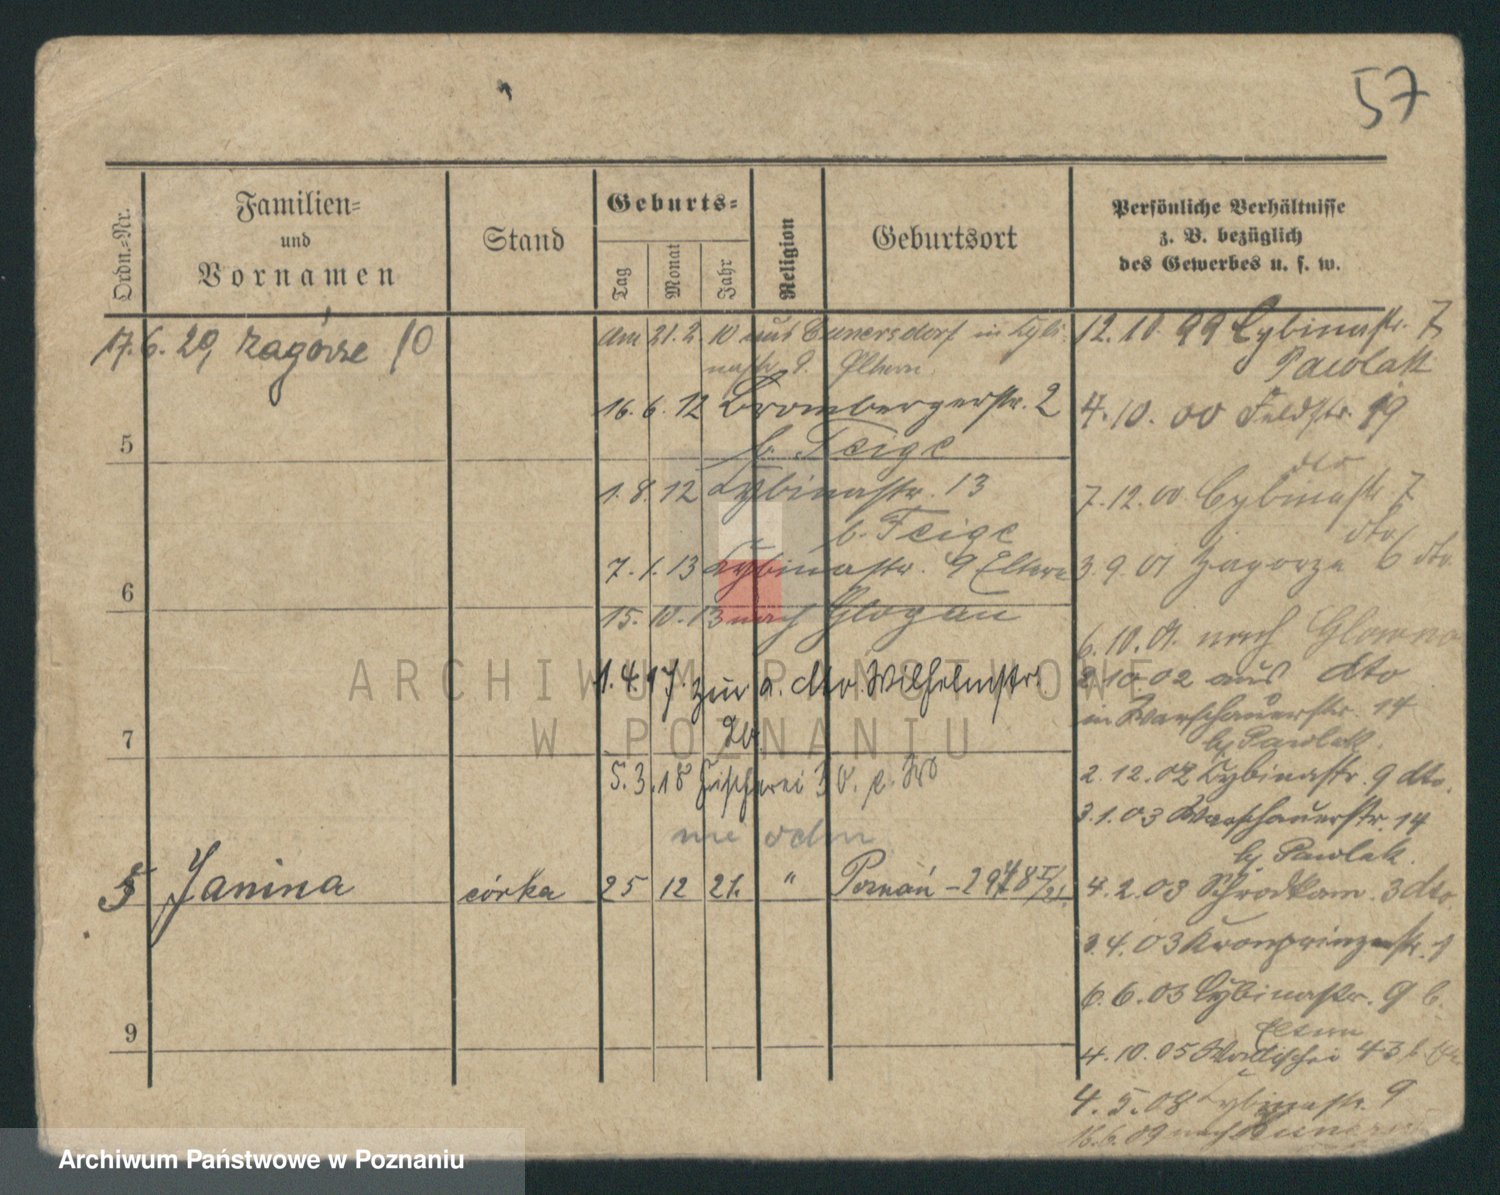 57
Ordn.-Nr.
Familien-
und
Vornamen
Stand
Geburts-
Tag
Monat
Jahr
Religion
Geburtsort
Persönliche Verhältnisse
z. B. bezüglich
des Gewerbes u. s. w.
17.6.20, Zagórze 10
am 21.2.10 aus Cunersdorf in Cybi-
nastr. 9. Eltern.
16.6.12 Brombergerstr. 2
b. Feige
1.8.12 Cybinastr. 13
b. Feige
7.1.13 Cybinastr. 9 Eltern
15.10.13 nach Glogau
1.4.17 zur a. dto. Wilhelmstr.
20
5.3.18 Fischerei 30
5
6
7
Janina
córka
25 12 21. " Poznań
9
12.10.99 Cybinastr. 7
Pawlak
4.10.00 Feldstr. 19
dto
7.12.00 Cybinastr. 7
dto
3.9.01 Zagorze 6 dto
6.10.01. nach Glowno
2.10.02 aus dto
in Warschauerstr. 14
bj Pawlak.
2.12.02 Cybinastr. 9 dto.
3.1.03 Warschauerstr. 14
bj Pawlak.
4.2.03 Schrodkam. 3 dto.
3.4.03 Kronprinzenstr. 1
6.6.03 Cybinastr. 9 b.
Eltern
4.10.05 Wallischei 43
4.5.08 Cybinastr. 9
16.6.09 nach
ARCHIWUM PAŃSTWOWE
W POZNANIU
Archiwum Państwowe w Poznaniu